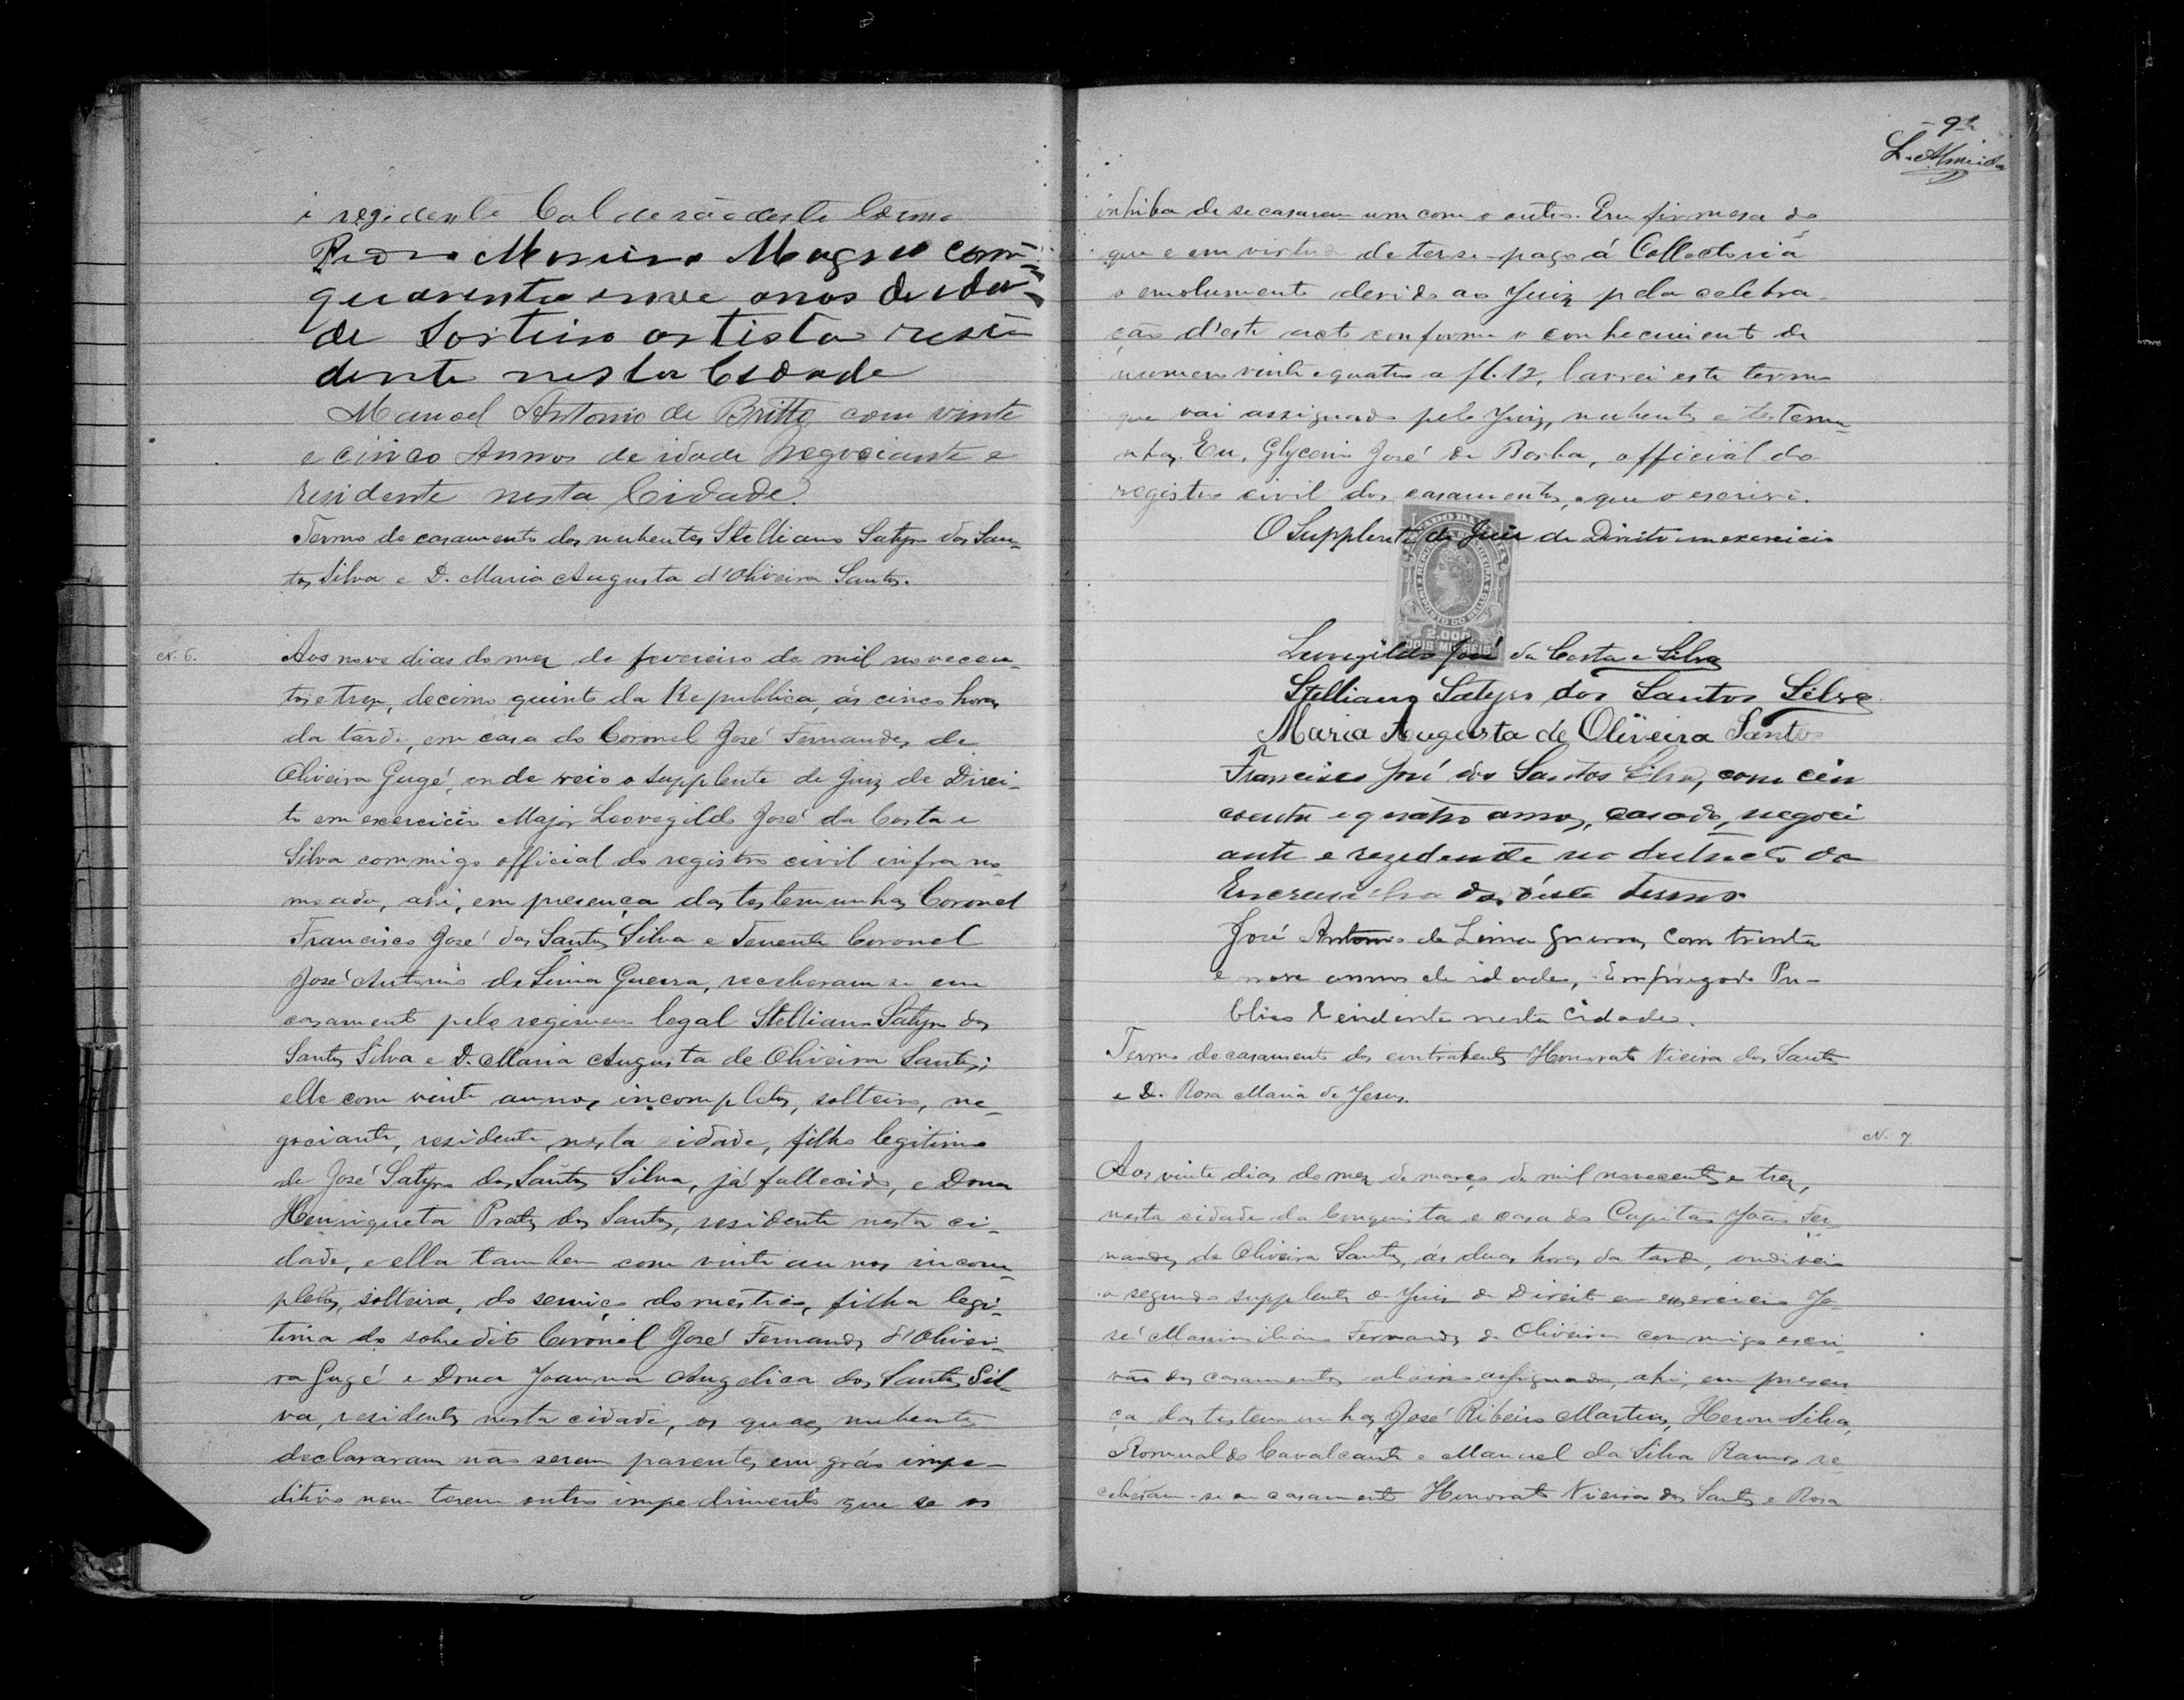 i rezidente Calderão deste termo
Pedro Moreira Magno com
quarenta enove anos de ida-
de Sorteiro artista resi
dente nesta Cidade
Manoel Antonio de Britto com vinte
e cinco Annos de idade Negociante e
residente nesta Cidade.
Termo de casamento dos nubentes Stelliano Satyro dos San-
tos Silva e D. Maria Augusta d'Oliveira Santos.
N. 6.
Aos nove dias do mez de fevereiro de mil novecen-
tos e trez, decimo quinto da Republica, ás cinco horas
da tarde, em casa do Coronel José Fernandes de
Oliveira Gugé, onde veio o supplente de Juiz de Direi-
to em exercicio Major Leovegildo José da Costa e
Silva commigo official do registro civil infra no-
meado, ahi, em presença das testemunhas Coronel
Francisco José dos Santos Silva e Tenente Coronel
José Antonio de Lima Guerra, receberam-se em
casamento pelo regimen legal Stelliano Satyro dos
Santos Silva e D. Maria Augusta de Oliveira Santos;
elle com vinte annos incompletos, solteiro, ne-
gociante, residente nesta cidade, filho legitimo
de José Satyro dos Santos Silva, já fallecido, e Dona
Henriqueta Prates dos Santos, residente nesta ci-
dade, e ella tambem com vinte annos incom-
pletos, solteira, do serviço domestico, filha legi-
tima do sobredito Coronel José Fernandes d'Olivei-
ra Gugé e Dona Joanna Angelica dos Santos Sil-
va, residentes nesta cidade, os quaes nubentes
declararam não serem parentes em gráo impe-
ditivo nem terem outro impedimento que se os
9
L. Almeida
inhiba de se casarem um com o outro. Em firmesa do
que e em virtude de ter-se pago á Collectoria
o emolumento devido ao Juiz pela celebra-
ção d'este acto conforme o conhecimento de
numero vinte e quatro a fl. 12, lavrei este termo
que vai assignado pelo Juiz, nubentes e testemu-
nhas. Eu, Glycerio José da Rocha, official do
registro civil dos casamentos, o que o escrivi.
O Supplente do Juiz de Direito em exercicio
2.000
DOIS MIL REIS
Leovigildo José da Costa e Silva
Stelliano Satyro dos Santos Silva
Maria Augusta de Oliveira Santos
Francisco José dos Santos Silva, com cin
coenta e quatro annos, casado, negoci
ante e rezedente no destricto da
Encruzilhada d'este termo
José Antonio de Lima Guerra, com trinta
e nove annos de idade, Empregado Pu-
blico residente nesta Cidade.
Termo de casamento dos contrahentes Honorato Vieira dos Santos
e D. Rosa Maria de Jesus.
N. 7.
Aos vinte dias do mez de março de mil novecentos e trez,
nesta cidade da Conquista e casa do Capitão João Fer-
nandes de Oliveira Santos, ás duas horas da tarde, onde veio
o segundo supplente do Juiz de Direito em exercicio Jo-
sé Maximiliano Fernandes de Oliveira commigo escri-
vão dos casamentos abaixo assignado, ahi, em presen-
ça das testemunhas José Ribeiro Martins, Heron Silva,
Romualdo Cavalcante e Manuel da Silva Ramos re-
ceberam-se em casamento Honorato Vieira dos Santos e Rosa